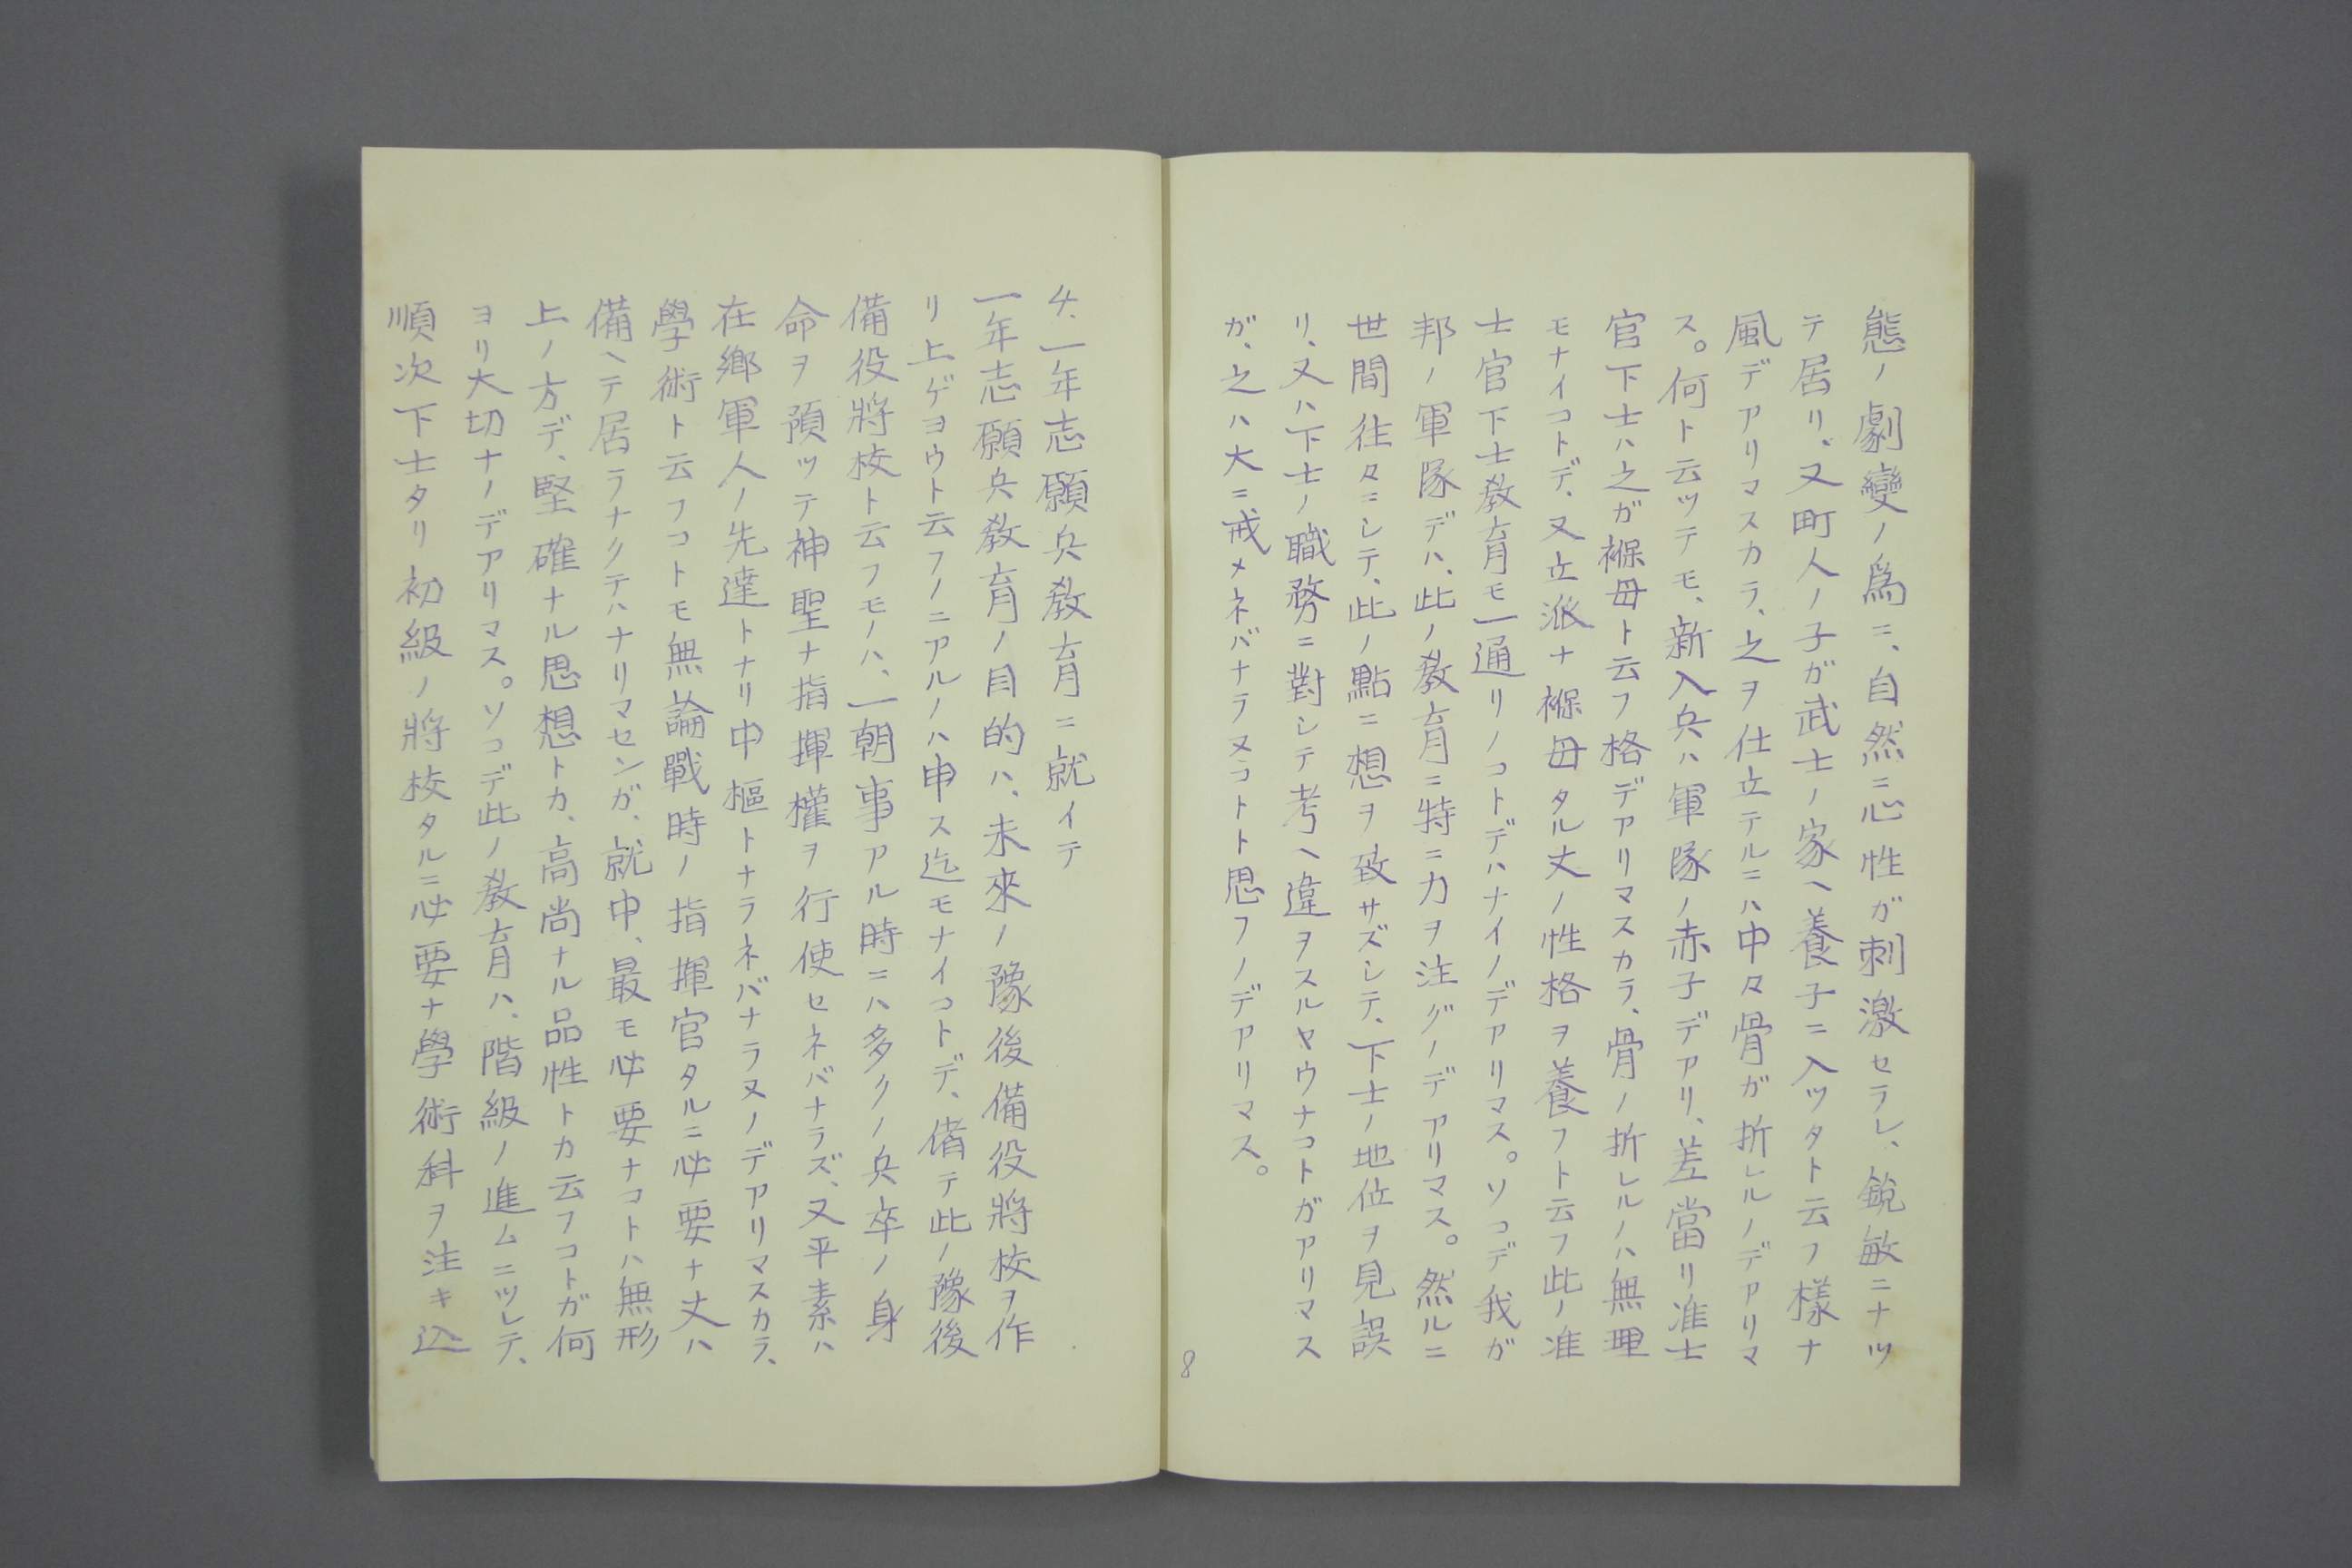 態ノ劇變ノ爲ニ、自然ニ心性ガ刺激セラレ、鋭敏ニナツ
テ居リ、又町人ノ子ガ武士ノ家ヘ養子ニ入ツタト云フ樣ナ
風デアリマスカラ、之ヲ仕立テルニハ中々骨ガ折レルノデアリマ
ス。何ト云ツテモ、新入兵ハ軍隊ノ赤子デアリ、差當リ准士
官下士ハ之ガ褓母ト云フ格デアリマスカラ、骨ノ折レルノハ無理
モナイコトデ、又立派ナ褓母タル丈ノ性格ヲ養フト云フ此ノ准
士官下士教育モ一通リノコトデハナイノデアリマス。ソコデ我ガ
邦ノ軍隊デハ、此ノ教育ニ特ニ力ヲ注グノデアリマス。然ルニ
世間往々ニシテ、此ノ點ニ想ヲ致サズシテ、下士ノ地位ヲ見誤
リ、又ハ下士ノ職務ニ對シテ考ヘ違ヲスルヤウナコトガアリマス
ガ、之ハ大ニ戒メネバナラヌコトト思フノデアリマス。
8
4、一年志願兵教育ニ就イテ
一年志願兵教育ノ目的ハ、未來ノ豫後備役將校ヲ作
リ上ゲヨウト云フノニアルノハ申ス迄モナイコトデ、偖テ此ノ豫後
備役將校ト云フモノハ、一朝事アル時ニハ多クノ兵卒ノ身
命ヲ預ツテ神聖ナ指揮權ヲ行使セネバナラズ、又平素ハ
在鄉軍人ノ先達トナリ中樞トナラネバナラヌノデアリマスカラ、
學術ト云フコトモ無論戰時ノ指揮官タルニ必要ナ丈ハ
備ヘテ居ラナクテハナリマセンガ、就中、最モ必要ナコトハ無形
上ノ方デ、堅確ナル思想トカ、高尚ナル品性トカ云フコトガ何
ヨリ大切ナノデアリマス。ソコデ此ノ教育ハ、階級ノ進ムニツレテ、
順次下士タリ初級ノ將校タルニ必要ナ學術科ヲ注キ込